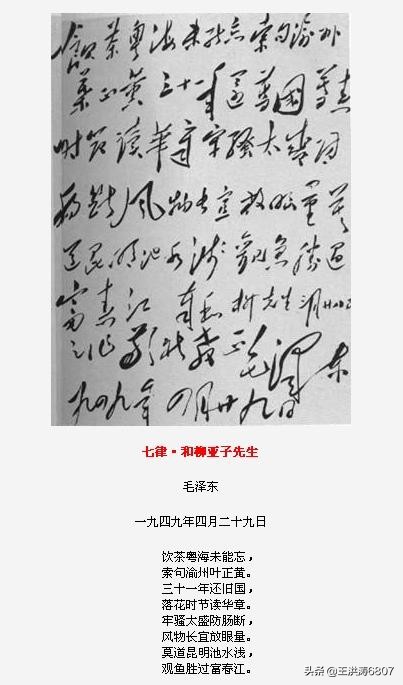 飲茶粤海未能忘索句渝州
葉正黄三十一年還舊國落花
时节讀華章牢騷太盛防
腸斷風物长宜放眼量莫
道昆明池水浅觀魚勝過
富春江 奉和柳先生三月廿八日
之作敬祈教正 毛泽东
一九四九年四月廿九日
七律·和柳亚子先生
毛泽东
一九四九年四月二十九日
饮茶粤海未能忘，
索句渝州叶正黄。
三十一年还旧国，
落花时节读华章。
牢骚太盛防肠断，
风物长宜放眼量。
莫道昆明池水浅，
观鱼胜过富春江。
头条 @王洪涛6807